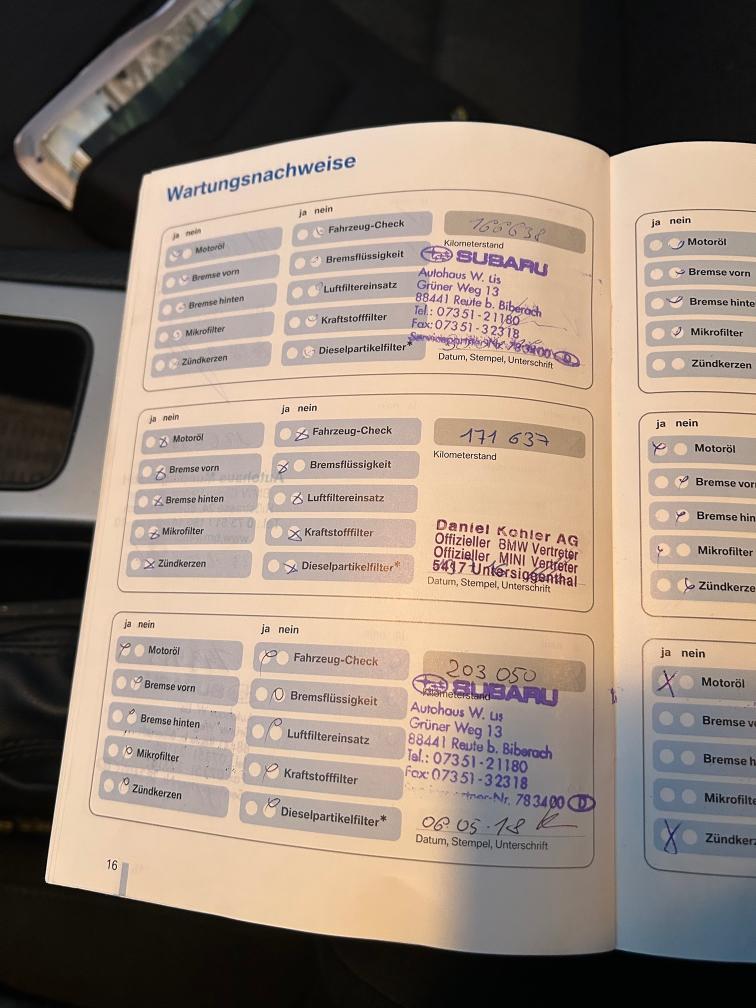 Wartungsnachweise
ja nein
Motoröl
Bremse vorn
Bremse hinten
Mikrofilter
Zündkerzen
ja nein
Fahrzeug-Check
Bremsflüssigkeit
Luftfiltereinsatz
Kraftstofffilter
Dieselpartikelfilter*
Kilometerstand
SUBARU
Autohaus W. Lis
Grüner Weg 13
88441 Reute b. Biberach
Tel.: 07351-21180
Fax: 07351-32318
783400 D
Datum, Stempel, Unterschrift
ja nein
Motoröl
Bremse vorn
Bremse hinten
Mikrofilter
Zündkerzen
ja nein
Fahrzeug-Check
Bremsflüssigkeit
Luftfiltereinsatz
Kraftstofffilter
Dieselpartikelfilter*
171 637
Kilometerstand
Daniel Kohler AG
Offizieller BMW Vertreter
Offizieller MINI Vertreter
5417 Untersiggenthal
Datum, Stempel, Unterschrift
ja nein
Motoröl
Bremse vorn
Bremse hinten
Mikrofilter
Zündkerzen
ja nein
Fahrzeug-Check
Bremsflüssigkeit
Luftfiltereinsatz
Kraftstofffilter
Dieselpartikelfilter*
203 050
Kilometerstand
SUBARU
Autohaus W. Lis
Grüner Weg 13
88441 Reute b. Biberach
Tel.: 07351-21180
Fax: 07351-32318
783400 D
08.05.18
Datum, Stempel, Unterschrift
16
ja nein
Motoröl
Bremse vorn
Bremse hinte
Mikrofilter
Zündkerzen
ja nein
Motoröl
Bremse vor
Bremse hin
Mikrofilter
Zündkerze
ja nein
Motoröl
Bremse v
Bremse h
Mikrofilte
Zündker